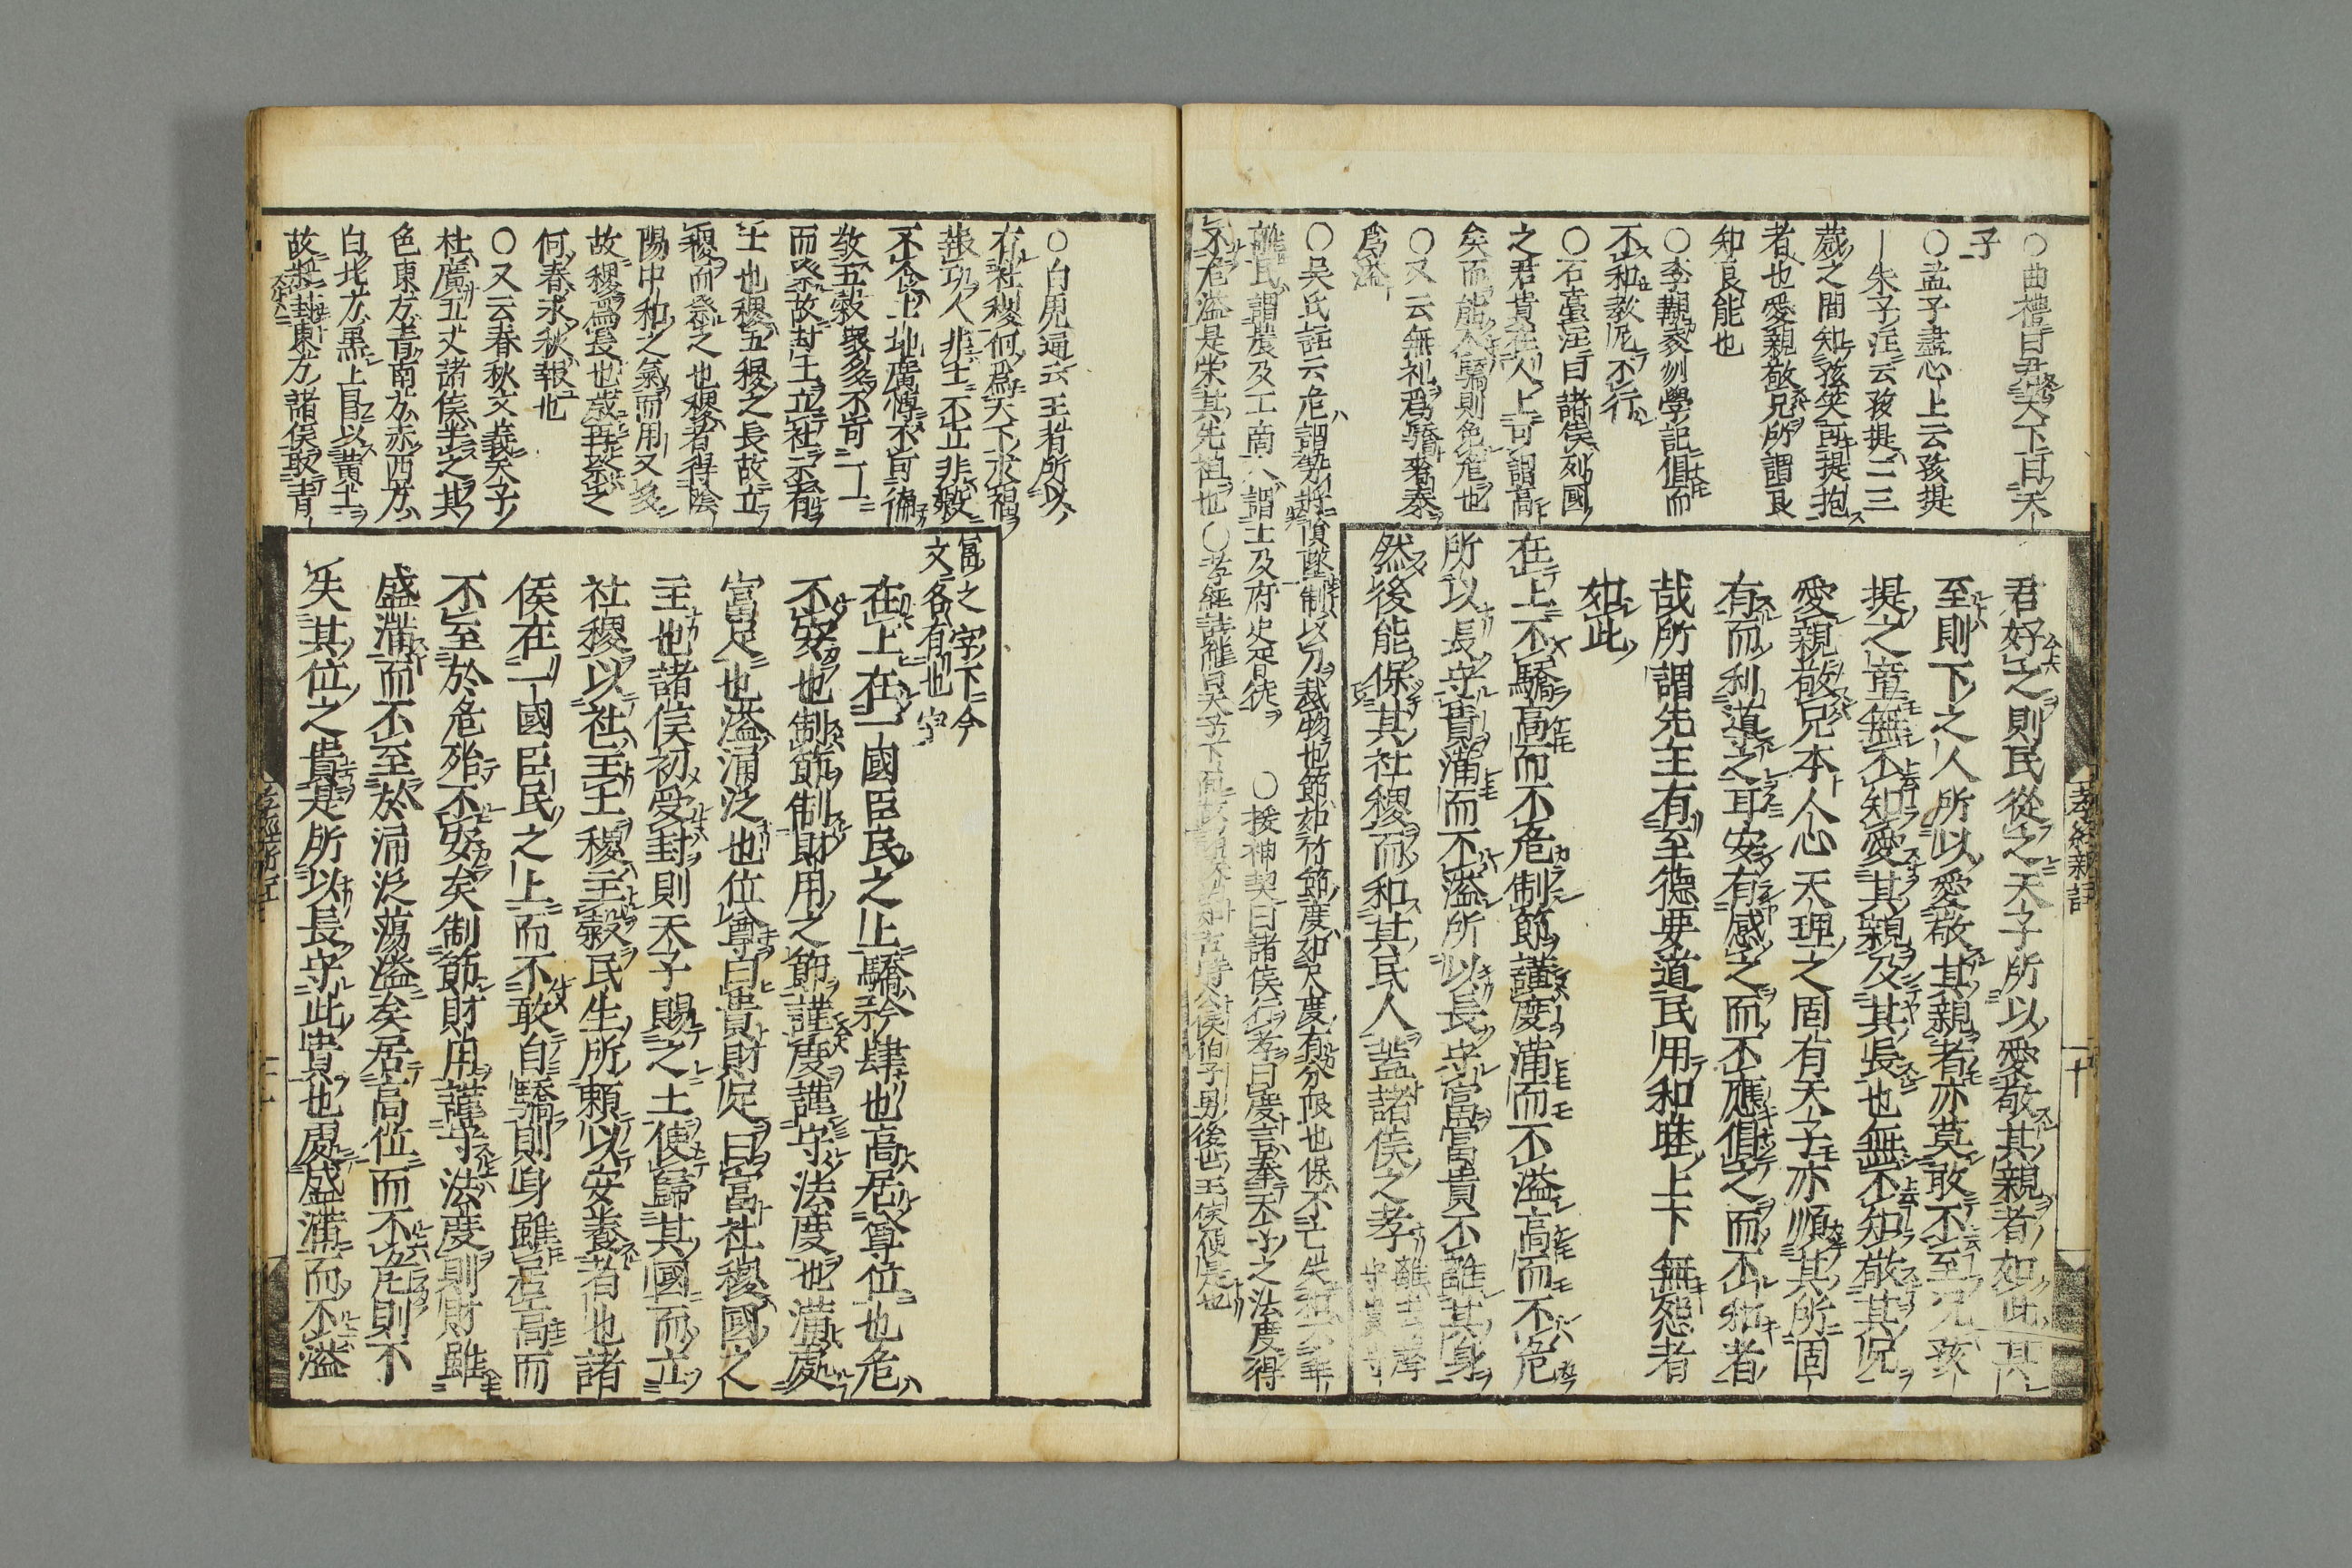 ○曲禮曰君天下曰天
子
○孟子盡心上云孩提
｜朱子注云孩提二三
歲之間知孩笑可提抱
者也愛親敬兄所謂良
知良能也
○李觀袤刕學記俱而
不和教尼不行
○石臺注曰諸侯列國
之君貴在人上可謂高
矣而能不驕則免危也
○又云無礼爲驕奢泰
爲溢
君好之則民從之天子所以愛敬其親者如此其
至則下之人所以愛敬其親者亦莫敢不至況孩
提之童無不知愛其親及其長也無不知敬其兄
愛親敬兄本人心天理之固有天子亦順其所固
有而利道之耳安有感之而不應俱之而不和者
哉所謂先王有至德要道民用和睦上下無怨者
如此
在上不驕高而不危制節謹度滿而不溢高而不危
所以長守貴滿而不溢所以長守富富貴不離其身
然後能保其社稷而和其民人蓋諸侯之孝
○吳氏註云危謂勢將隕墜制以刀裁物也節如竹節度如尺度有分限也保不亡失
民謂農及工商人謂士及府史胥徒 ○援神契曰諸侯行孝曰度言奉天子之法度得
不危溢是榮其先祖也○孝經
孝經新註
十
○白虎通云王者所以
有社稷何爲天下求福
報功人非土不立非穀
不食土地廣博不可徧
敬五穀衆多不可一一
而祭故封土立社示有
土也稷五穀之長故立
稷而祭之也稷者得陰
陽中和之氣而用又多
故稷爲長也歲再祭之
何春求秋報也
○又云春秋文義天子
社廣五丈諸侯半之其
色東方青南方赤西方
白北方黑上冒以黃土
故將封東方諸侯取青
富之字下今
文各有也字
在上在一國臣民之上驕矜肆也高居尊位也危
不安也制節制財用之節謹度謹守法度也滿處
富足也溢涌泛也位尊曰貴財足曰富社稷國之
主也諸侯初受封則天子賜之土使歸其國而立
社稷以社主土稷主穀民生所頼以安養者也諸
侯在一國臣民之上而不敢自驕則身雖居高而
不至於危殆不安矣制節財用謹守法度則財雖
盛滿而不至於涌泛蕩溢矣居高位而不危則不
失其位之貴是所以長守此貴也處盛滿而不溢